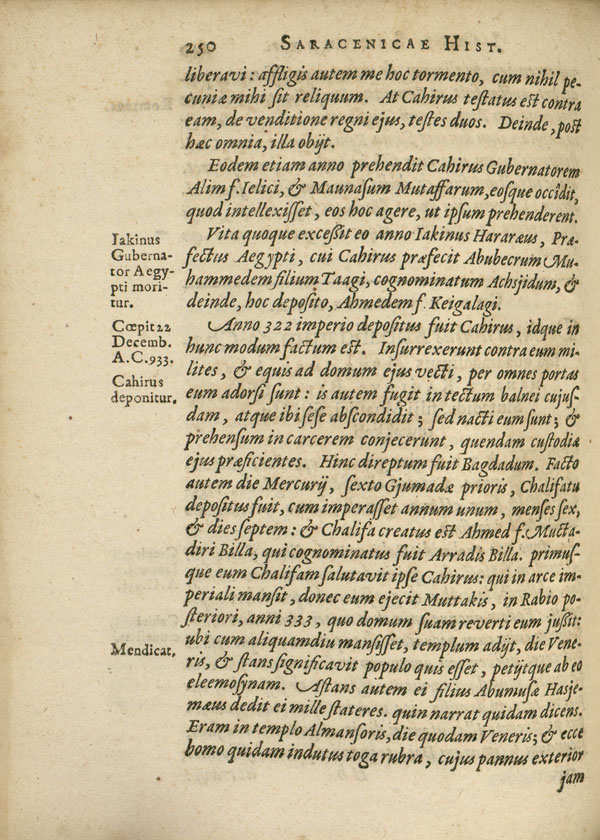 250 SARACENICAE HIST.
liberavi: affligis autem me hoc tormento, cum nihil pe-
cuniæ mihi sit reliquum. At Cahirus testatus est contra
eam, de venditione regni ejus, testes duos. Deinde, post
hæc omnia, illa obijt.
Eodem etiam anno prehendit Cahirus Gubernatorem
Alim f. Ielici, & Maunasum Mutaffarum, eosque occîdit,
quod intellexisset, eos hoc agere, ut ipsum prehenderent.
Iakinus
Guberna-
tor Aegy-
pti mori-
tur.
Vita quoque excessit eo anno Iakinus Hararæus, Præ-
fectus Aegypti, cui Cahirus præfecit Abubecrum Mu-
hammedem filium Taagi, cognominatum Achsjidum, &
deinde, hoc deposito, Ahmedem f. Keigalagi.
Cœpit 22
Decemb.
A.C. 933.
Cahirus
deponitur.
Anno 322 imperio depositus fuit Cahirus, idque in
hunc modum factum est. Insurrexerunt contra eum mi-
lites, & equis ad domum ejus vecti, per omnes portas
eum adorsi sunt: is autem fugit in tectum balnei cujus-
dam, atque ibi sese abscondidit; sed nacti eum sunt; &
prehensum in carcerem conjecerunt, quendam custodiæ
ejus præficientes. Hinc direptum fuit Bagdadum. Facto
autem die Mercurij, sexto Gjumadæ prioris, Chalifatu
depositus fuit, cum imperasset annum unum, menses sex,
& dies septem: & Chalifa creatus est Ahmed f. Mucta-
diri Billa, qui cognominatus fuit Arradis Billa. primus-
que eum Chalifam salutavit ipse Cahirus: qui in arce im-
periali mansit, donec eum ejecit Muttakis, in Rabio po-
steriori, anni 333, quo domum suam reverti eum jussit:
Mendicat.
ubi cum aliquamdiu mansisset, templum adijt, die Vene-
ris, & stans significavit populo quis esset, petijtque ab eo
eleemosynam. Astans autem ei filius Abumusæ Hasje-
mæus dedit ei mille stateres. quin narrat quidam dicens.
Eram in templo Almansoris, die quodam Veneris; & ecce
homo quidam indutus toga rubra, cujus pannus exterior
jam